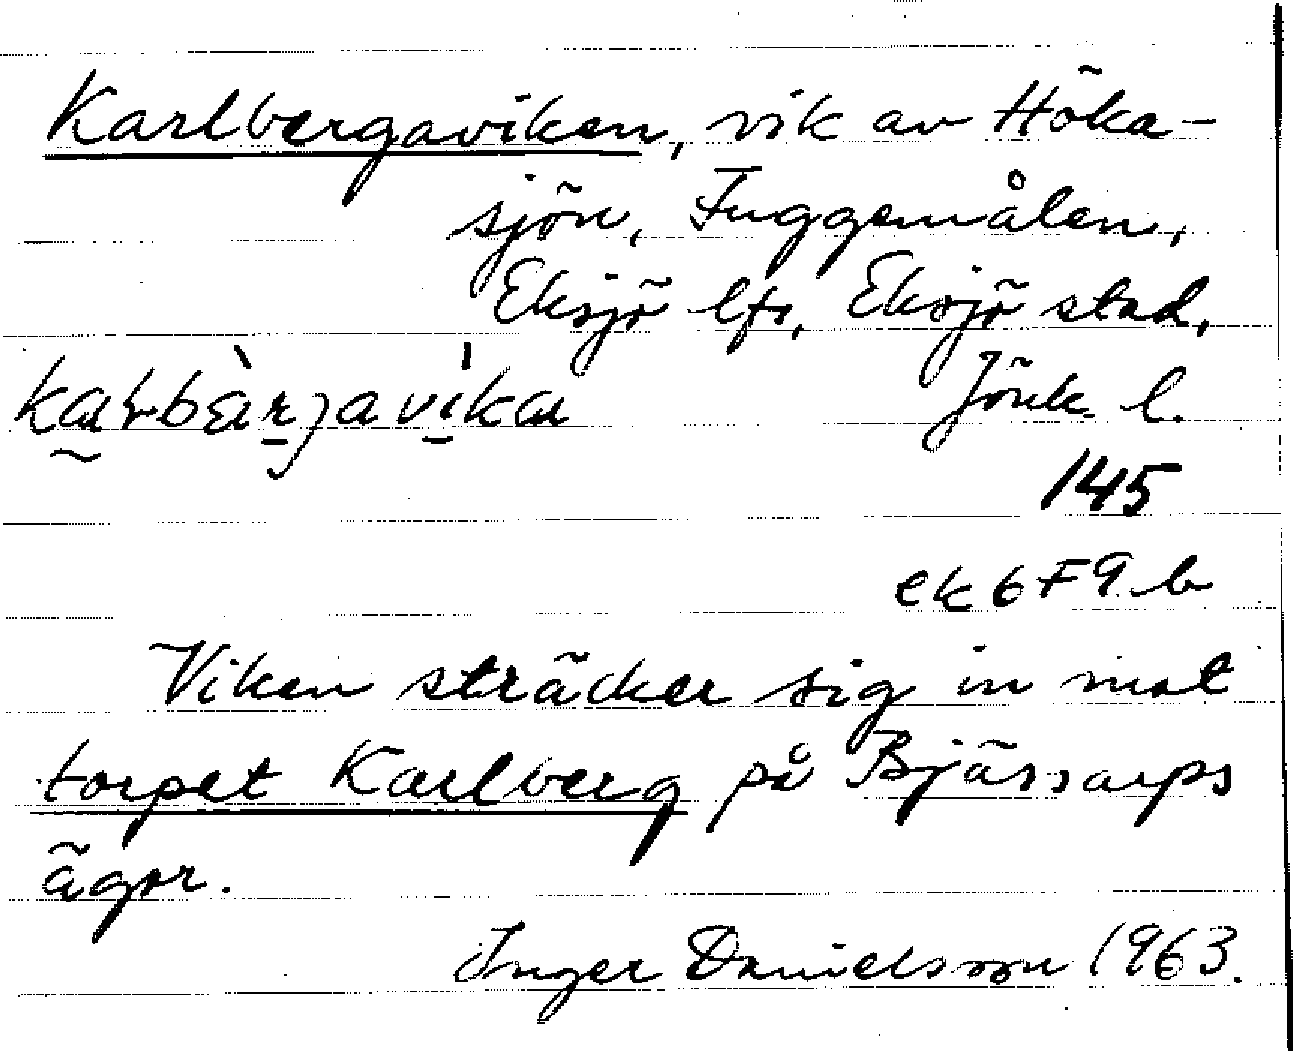 Karlbergaviken, vik av Höka-
sjön, Fuggemålen,
Eksjö lfs, Eksjö stad,
Jönk. l.
145
ek 6 F 9 b
Viken sträcker sig in mot
torpet Karlberg på Bjässarps
ägor.
Inger Danielsson 1963.